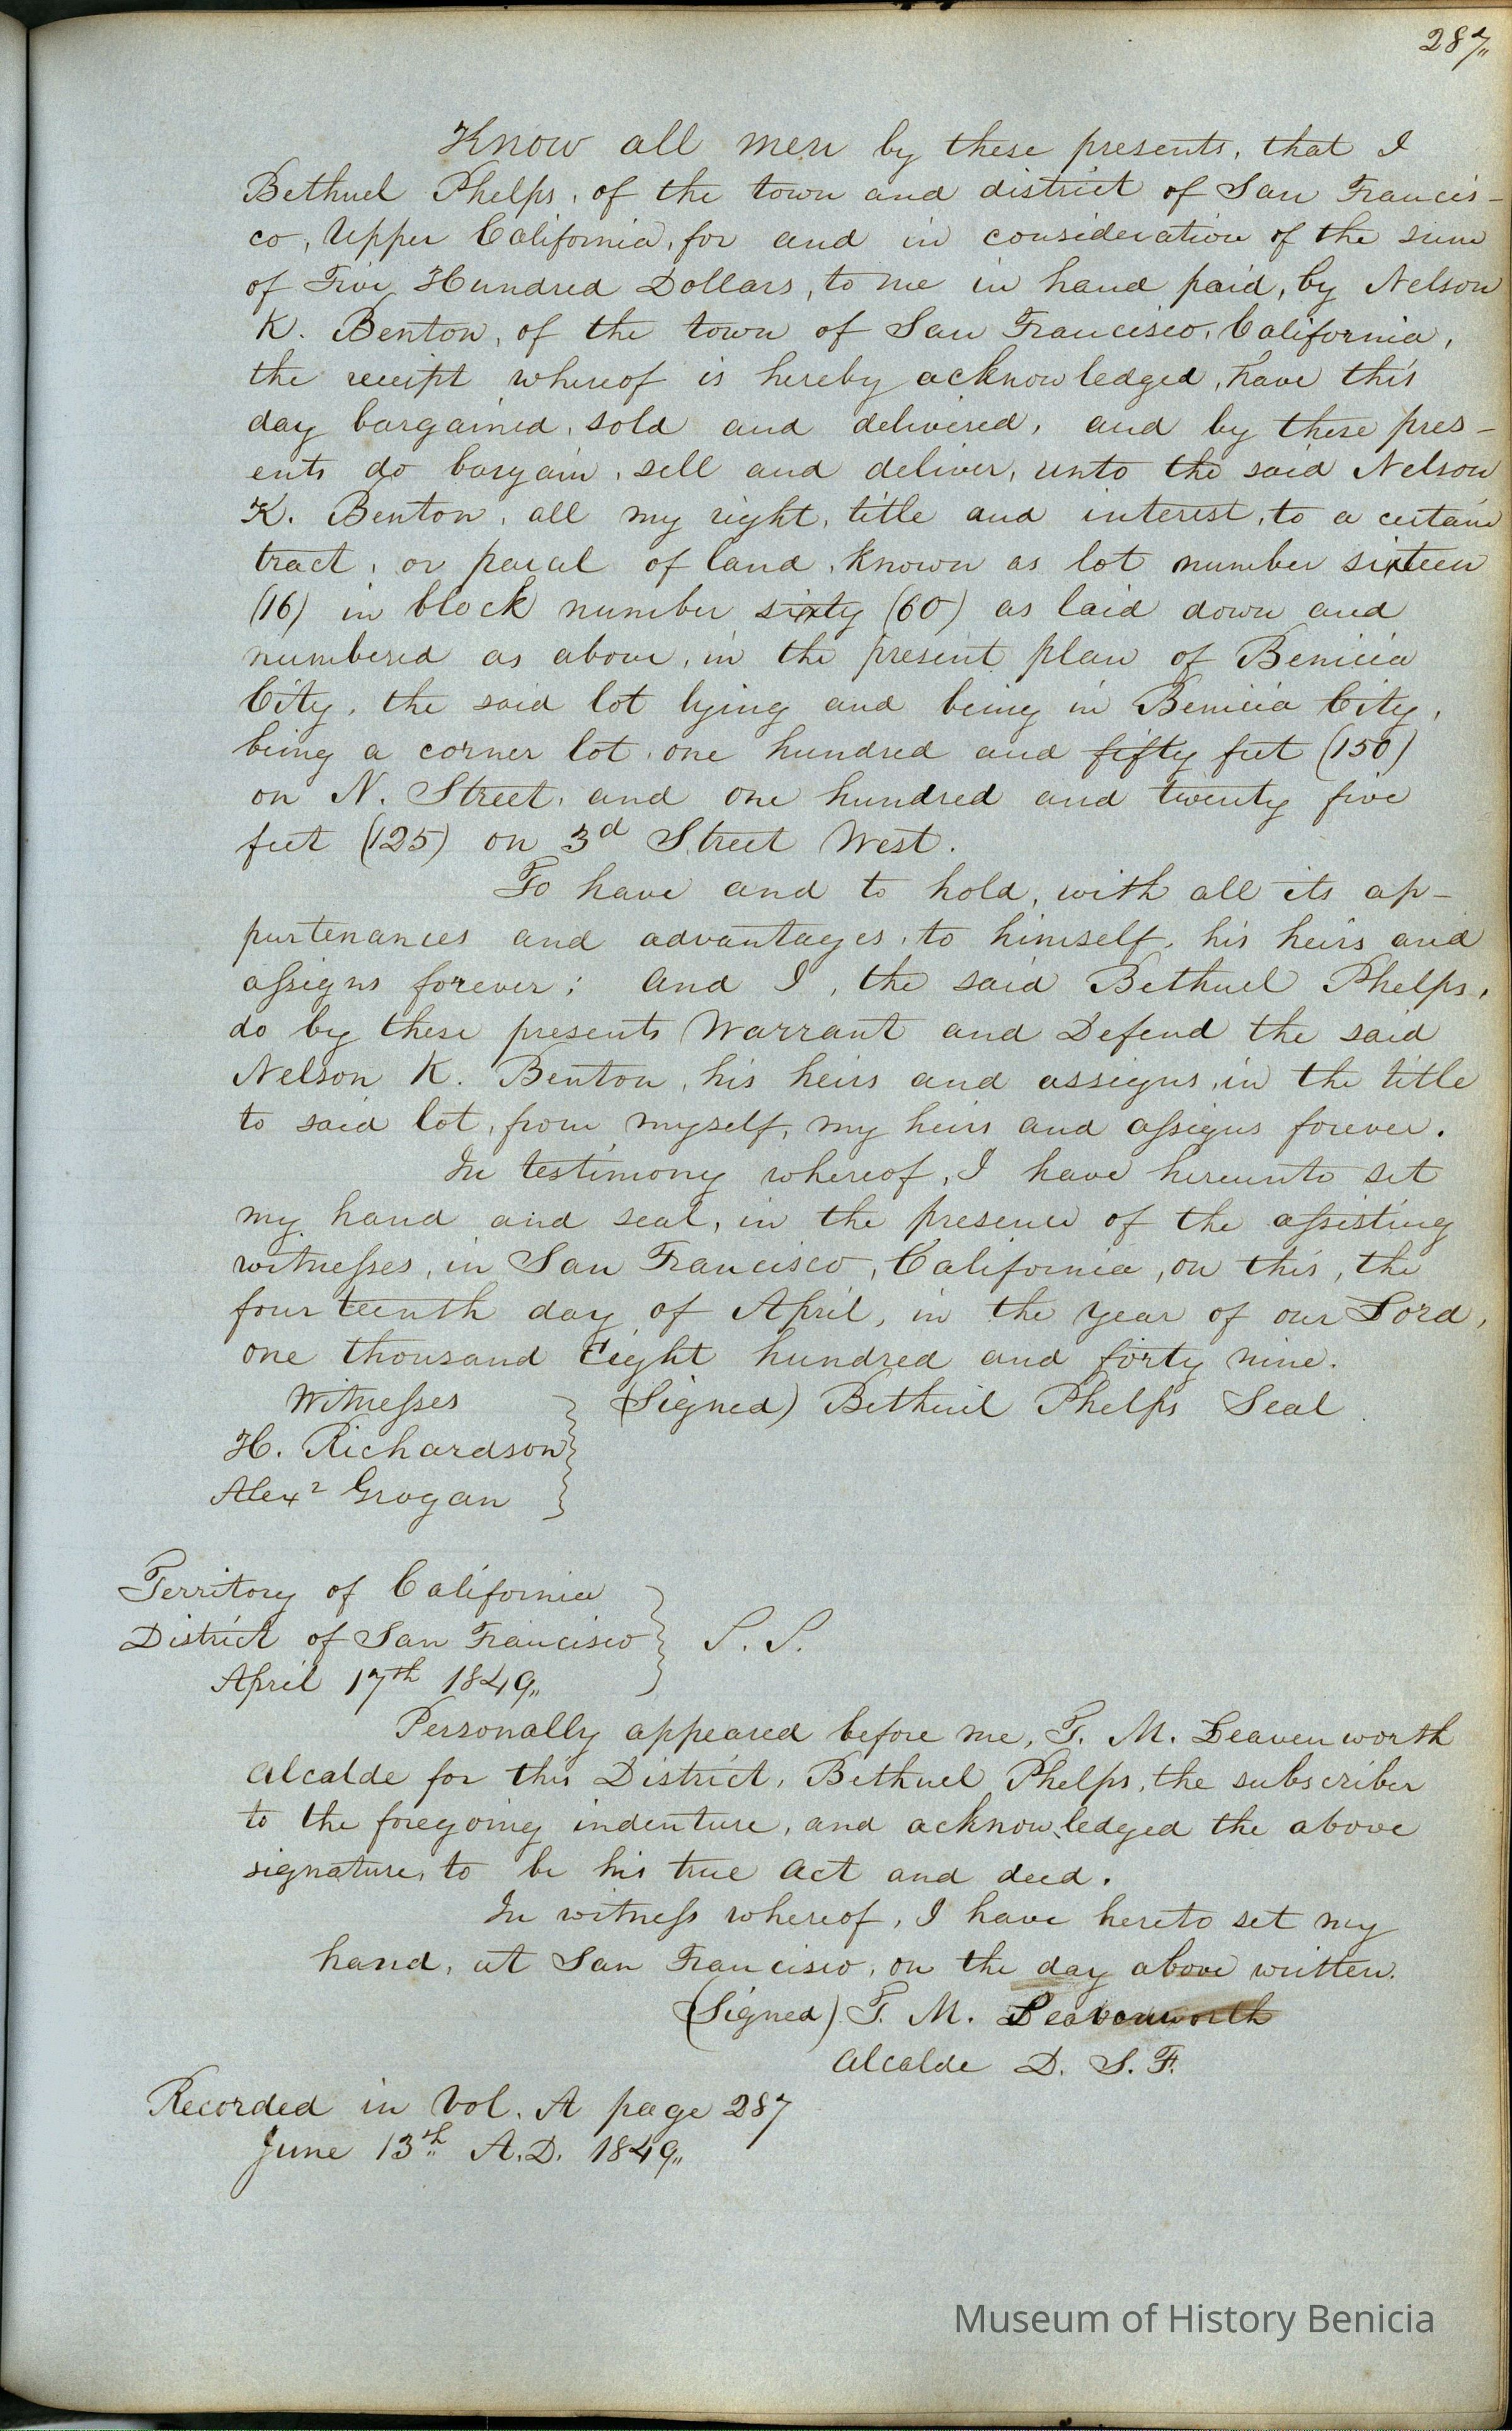 287,,
Know all men by these presents, that I
Bethuel Phelps, of the town and district of San Francis-
co, Upper California, for and in consideration of the sum
of Five Hundred Dollars, to me in hand paid, by Nelson
K. Benton, of the town of San Francisco, California,
the receipt whereof is hereby acknowledged, have this
day bargained, sold and delivered, and by these pres-
ents do bargain, sell and deliver, unto the said Nelson
K. Benton, all my right, title and interest, to a certain
tract, or parcel of land, known as lot number sixteen
(16) in block number sixty (60) as laid down and
numbered as above, in the present plan of Benicia
City, the said lot lying and being in Benicia City,
being a corner lot, one hundred and fifty feet (150)
on N. Street, and one hundred and twenty five
feet (125) on 3d Street West.
To have and to hold, with all its ap-
purtenances and advantages, to himself, his heirs and
assigns forever; and I, the said Bethuel Phelps,
do by these presents Warrant and Defend the said
Nelson K. Benton, his heirs and assigns, in the title
to said lot, from myself, my heirs and assigns forever.
In testimony whereof, I have hereunto set
my hand and seal, in the presence of the assisting
witnesses, in San Francisco, California, on this, the
fourteenth day of April, in the year of our Lord,
one thousand Eight hundred and forty nine.
Witnesses (Signed) Bethuel Phelps Seal
H. Richardson
Alexr Grogan
Territory of California
District of San Francisco S. S.
April 17th 1849,,
Personally appeared before me, T. M. Leavenworth
Alcalde for this District, Bethuel Phelps, the subscriber
to the foregoing indenture, and acknowledged the above
signature, to be his true act and deed.
In witness whereof, I have hereto set my
hand, at San Francisco, on the day above written.
(Signed) T. M. Leavenworth
Alcalde D. S. F.
Recorded in Vol. A page 287
June 13th A.D. 1849,,
Museum of History Benicia